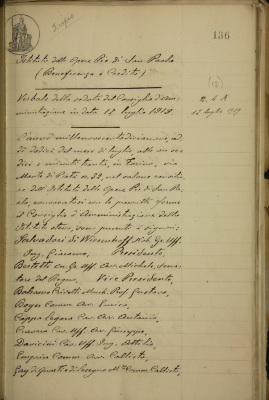 Segue
136
Istituto delle Opere Pie di San Paolo
(Beneficenza e Credito)
Verbale della seduta del Consiglio d'Am-
ministrazione in data 12 luglio 1919.
12 luglio 1919
L'anno millenovecentodiciannove, ad-
dì dodici del mese di luglio alle ore se-
dici e minuti trenta, in Torino, via
Monte di Pietà n. 32, nel salone
dell'Istituto delle Opere Pie di San Pa-
olo, convocatosi con le prescritte forme
il Consiglio d'Amministrazione dello
Istituto stesso, sono presenti i signori:
Salvadori di Wiesenhoff Nob. Gr. Uff.
Ing. Giacomo, Presidente,
Bertetti Cr. Gr. Uff. Avv. Michele, Sena-
tore del Regno, Vice Presidente,
Balsamo Crivelli March. Prof. Gustavo,
Boyer Comm. Avv. Enrico,
Cappa Legora Cav. Avv. Antonio,
Craveri Cav. Uff. Avv. Giuseppe,
Davicini Cav. Uff. Ing. Attilio,
Comm. Avv. Callisto,
Gay di Quarti